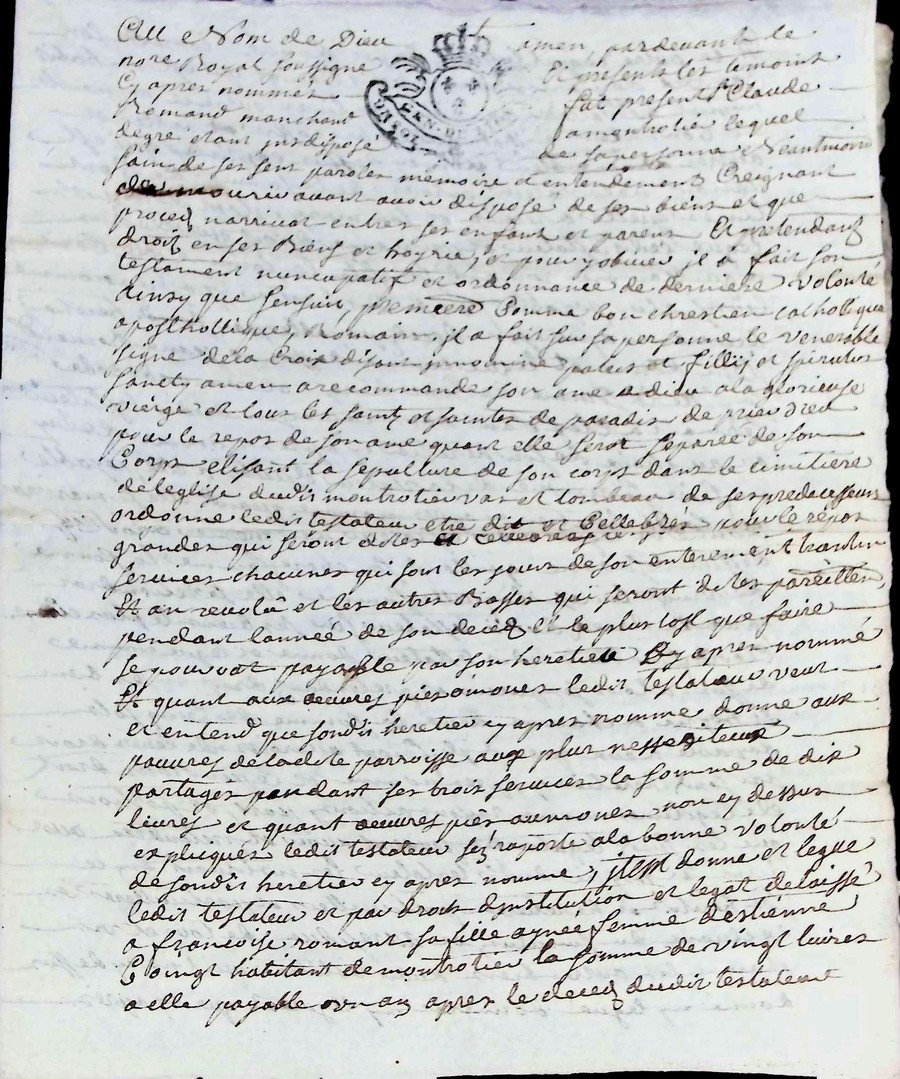 Au Nom de Dieu amen, pardevant le
nore Royal soussigne Et presents les temoins
Cy apres nommes fut present Sr Claude
Romand marchand a montrotie lequel
degré etant jndisposé de sa personne Neantmoins
sain de ses sens parolles mémoire et entendement Creignant
de mourir avant avoir disposé de ses biens et que
proceq narrivat entres ses enfant et parens Et pretendantz
droitz en ses Biens et hoyrie, et pour y obvier il a fait son
testament nuncupatif et ordonnance de derniere volonté
Ainsy que sensuit, premiere Comme bon chrestien catholique
aposthollique, Romain, il a fait sur sa personne le venerable
signe de la Croix disant innomine patris et fillij et spiritus
sancty amen a recommande son ame a dieu a la glorieuse
vierge et tous les saints et saintes de paradis de prier Dieu
pour le repos de son ame quant elle serat separée de son
Corps elisant la sepulture de son corps dans le cimitiere
de leglise dudit montrotie et tombeau de ses predecesseurs
ordonne ledit testateur etre dit et Cellebrés pour le repos
grandes qui seront dites et
services chacunes qui sont les jours de son enterement
Et au revolu et les autres Basses qui seront dites pareillem
pendant lanneé de son deceq et le plus tost que faire
se pourrat payable par son heretier Cy apres nommé
Et quant aux oeuvres pies omones ledit testateur veut
et entend que sondit heretier cy apres nomme donne aux
pauvres de ladite parroisse aux plus nessesiteux
partages pandant ses trois services la somme de dix
livres et quant oeuvres pies aumones non cy dessus
expliqués ledit testateur sen raporte a la bonne volonté
de sondit heretier cy apres nomme, jtem donne et legue
ledit testateur et par droit dinstitution et legat delaisse
a francoise romant sa fille aynée femme destienne
Coingt habitant de montrotier la somme de vingt livres
a elle payable un an apres le deceq dudit testateur